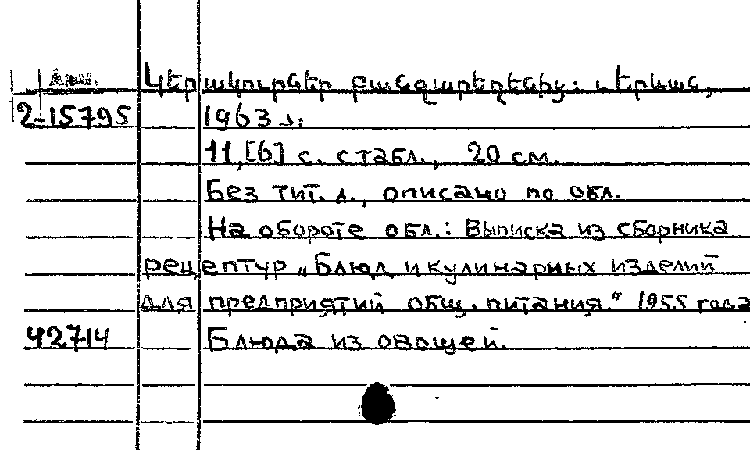 Арм. Կերակուրներ բանջարեղենից: Երևան,
2-15795 1963 г.
11,[6] с. с табл., 20 см.
Без тит. л., описано по обл.
На обороте обл.: Выписка из сборника
рецептур „Блюд и кулинарных изделий
для предприятий общ. питания." 1955 года
42714 Блюда из овощей.